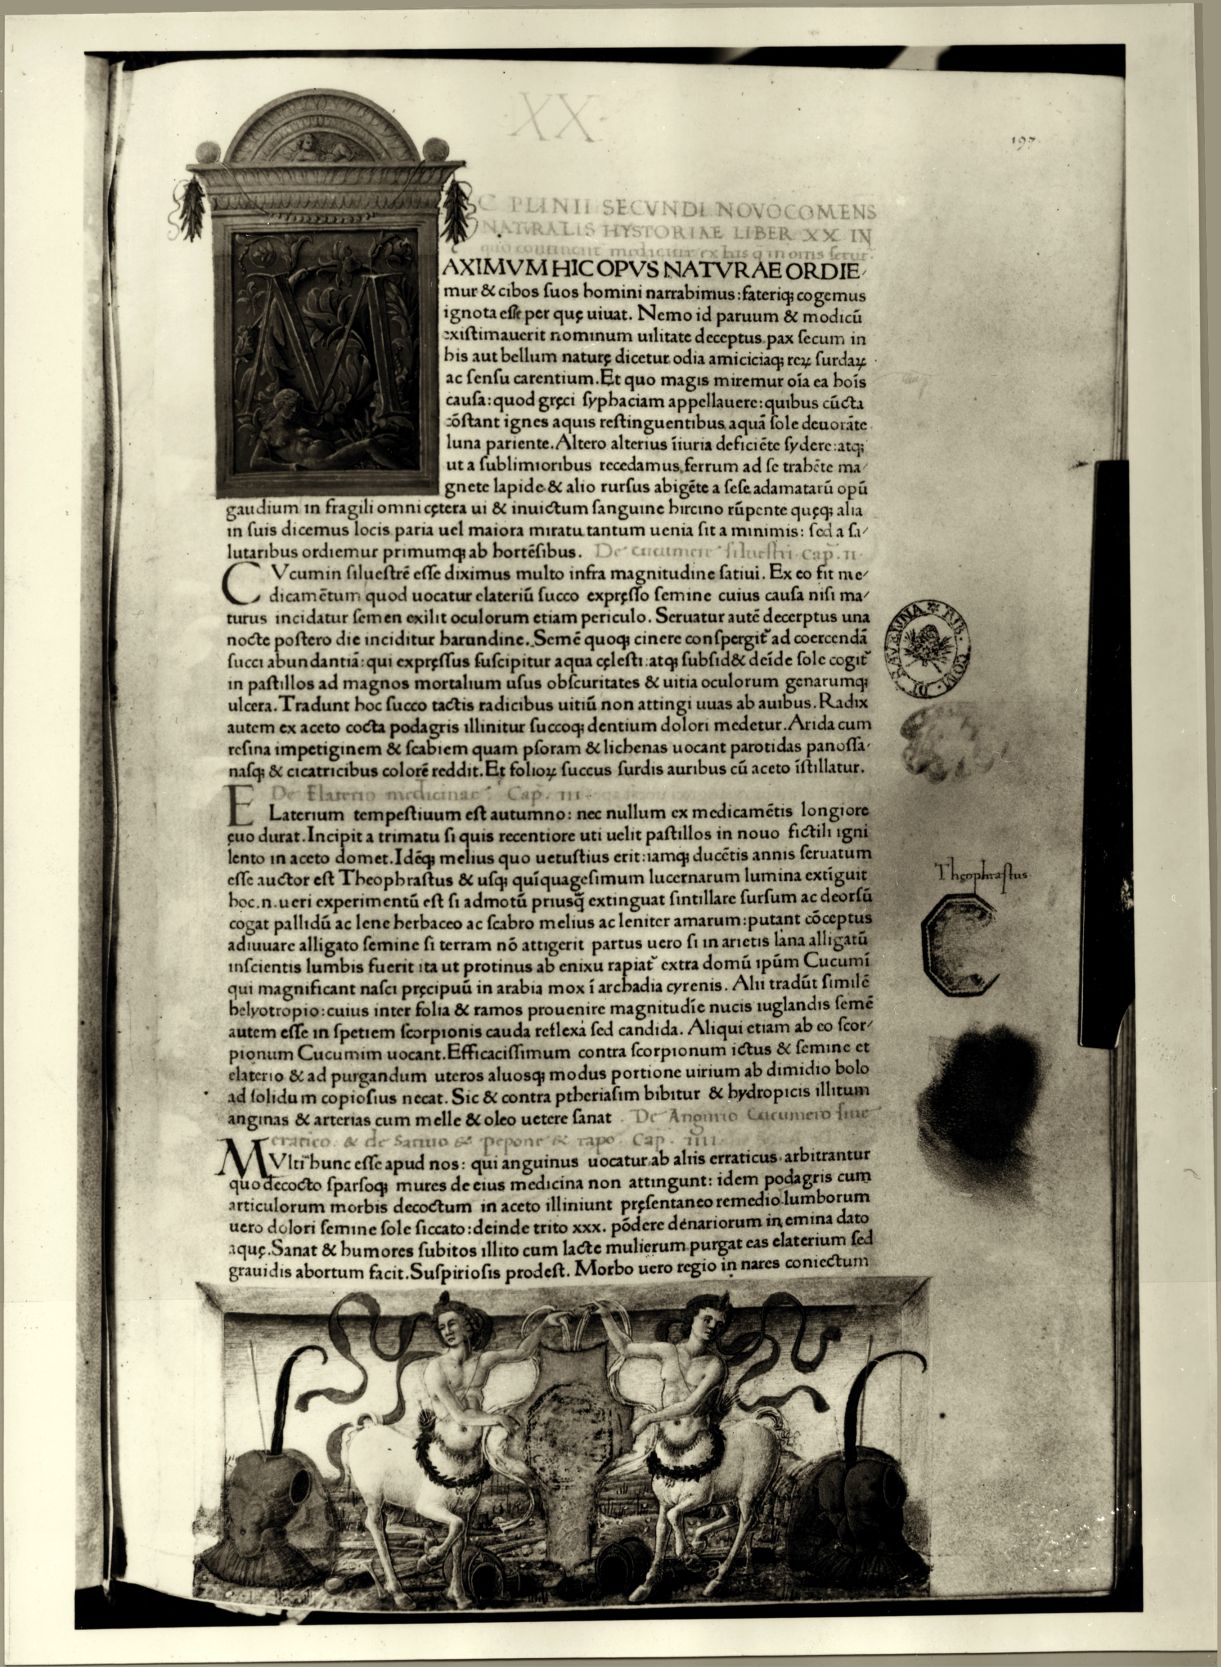 XX
197
C PLINII SECVNDI NOVOCOMENS
NATVRALIS HYSTORIAE LIBER XX IN
quo continent medicine ex his q̄ in ortis serūt
M
AXIMVM HIC OPVS NATVRAE ORDIE⸗
mur & cibos ſuos homini narrabimus: fateriqꝫ cogemus
ignota eſſe per quę uiuat. Nemo id paruum & modicū
exiſtimauerit nominum uilitate deceptus pax ſecum in
his aut bellum naturę dicetur odia amiciciaqꝫ reꝝ ſurdaꝝ
ac ſenſu carentium. Et quo magis miremur oīa ea hoīs
cauſa: quod gręci ſyphaciam appellauere: quibus cūcta
cōſtant ignes aquis reſtinguentibus aquā ſole deuorāte
luna pariente. Altero alterius īiuria deficiēte ſydere: atqꝫ
ut a ſublimioribus recedamus ferrum ad ſe trahēte ma⸗
gnete lapide & alio rurſus abigēte a ſeſe adamatarū opū
gaudium in fragili omni cętera ui & inuictum ſanguine hircino rūpente quęqꝫ alia
in ſuis dicemus locis paria uel maiora miratu tantum uenia ſit a minimis: ſed a ſa⸗
lutaribus ordiemur primumqꝫ ab hortēſibus. De cucumere ſilueſtri cap. II
CVcumin ſilueſtrē eſſe diximus multo infra magnitudine ſatiui. Ex eo fit me⸗
dicamētum quod uocatur elateriū ſucco expręſſo ſemine cuius cauſa niſi ma⸗
turus incidatur ſemen exilit oculorum etiam periculo. Seruatur autē decerptus una
nocte poſtero die inciditur harundine. Semē quoqꝫ cinere conſpergit᷑ ad coercendā
ſucci abundantiā: qui expręſſus ſuſcipitur aqua cęleſti: atqꝫ ſubſid& deīde ſole cogit᷑
in paſtillos ad magnos mortalium uſus obſcuritates & uitia oculorum genarumqꝫ
ulcera. Tradunt hoc ſucco tactis radicibus uitiū non attingi uuas ab auibus. Radix
autem ex aceto cocta podagris illinitur ſuccoqꝫ dentium dolori medetur. Arida cum
reſina impetiginem & ſcabiem quam pſoram & lichenas uocant parotidas panoſſa⸗
naſqꝫ & cicatricibus colorē reddit. Et folioꝝ ſuccus ſurdis auribus cū aceto īſtillatur.
De Elaterio medicinae Cap. III.
ELaterium tempeſtiuum eſt autumno: nec nullum ex medicamētis longiore
ęuo durat. Incipit a trimatu ſi quis recentiore uti uelit paſtillos in nouo fictili igni
lento in aceto domet. Idēqꝫ melius quo uetuſtius erit: iamqꝫ ducētis annis ſeruatum
eſſe auctor eſt Theophraſtus & uſqꝫ quīquageſimum lucernarum lumina extīguit
hoc. n. ueri experimentū eſt ſi admotū priuſq̄ extinguat ſintillare ſurſum ac deorſū
cogat pallidū ac lene herbaceo ac ſcabro melius ac leniter amarum: putant cōceptus
adiuuare alligato ſemine ſi terram nō attigerit partus uero ſi in arietis lana alligatū
inſcientis lumbis fuerit ita ut protinus ab enixu rapiat᷑ extra domū ipūm Cucumī
qui magnificant naſci pręcipuū in arabia mox ī archadia cyrenis. Alii tradūt ſimilē
helyotropio: cuius inter folia & ramos prouenire magnitudīe nucis iuglandis ſemē
autem eſſe in ſpetiem ſcorpionis cauda reflexa ſed candida. Aliqui etiam ab eo ſcor⸗
pionum Cucumim uocant. Efficaciſſimum contra ſcorpionum ictus & ſemine et
elaterio & ad purgandum uteros aluoſqꝫ modus portione uirium ab dimidio bolo
ad ſolidum copioſius necat. Sic & contra ptheriaſim bibitur & hydropicis illitum
anginas & arterias cum melle & oleo uetere ſanat. De Anguino Cucumero ſiue
erratico & de Satiuo & pepone & rapo. Cap. IIII.
MVlti hunc eſſe apud nos: qui anguinus uocatur ab aliis erraticus arbitrantur
quo decocto ſparſoqꝫ mures de eius medicina non attingunt: idem podagris cum
articulorum morbis decoctum in aceto illiniunt pręſentaneo remedio lumborum
uero dolori ſemine ſole ſiccato: deinde trito xxx. pōdere denariorum in emina dato
aquę. Sanat & humores ſubitos illito cum lacte mulierum purgat eas elaterium ſed
grauidis abortum facit. Suſpirioſis prodeſt. Morbo uero regio in nares coniectum
BIB. COM. DI RAVENNA
Theophraſtus